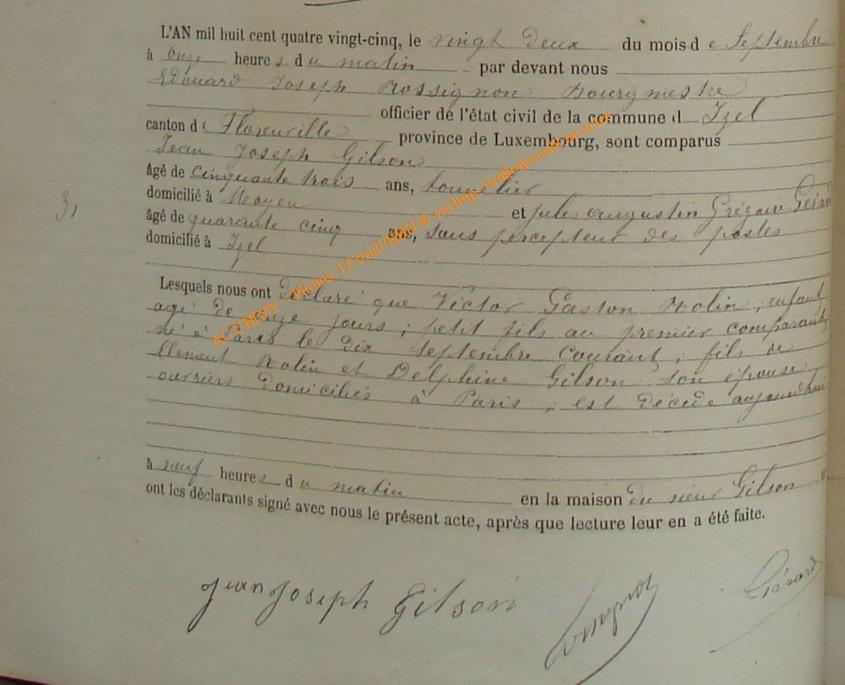 L'AN mil huit cent quatre vingt-cinq, le vingt deux du mois de Septembre
à onze heures du matin par devant nous
Edouard Joseph Rossignon Bourgmestre
officier de l'état civil de la commune d Izel
canton de Florenville province de Luxembourg, sont comparus
Jean Joseph Gilson
âgé de cinquante trois ans, tonnelier
domicilié à Moyen et Jules Augustin Grégoire Gérard
âgé de quarante cinq ans, sous percepteur des postes
domicilié à Izel
31
Lesquels nous ont déclaré que Victor Gaston Nolin, enfant
agé de onze jours, petit fils au premier comparant,
né à Paris le dix septembre courant, fils de
Nolin et Delphine Gilson son épouse
ouvriers domiciliés à Paris, est décédé aujourd'hui
à neuf heures du matin en la maison du sieur Gilson
ont les déclarants signé avec nous le présent acte, après que lecture leur en a été faite.
Jean Joseph Gilson
Gérard